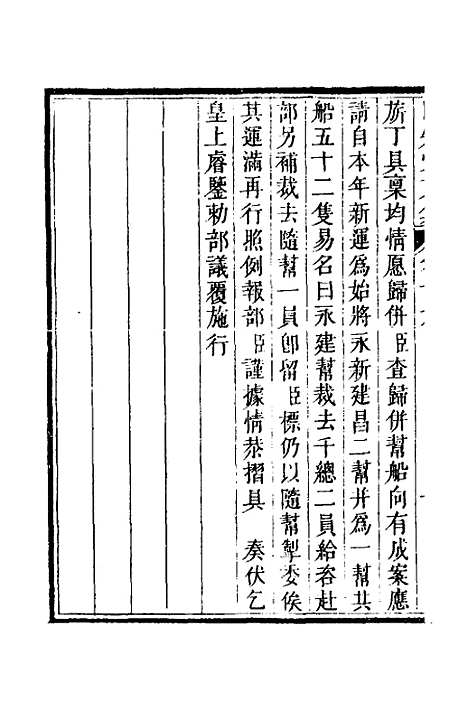 旂丁具稟均情愿歸併臣查歸併幫船向有成案應
請自本年新運爲始將永新建昌二幫并爲一幫共
船五十二隻易名曰永建幫裁去千總二員給咨赴
部另補裁去隨幫一員卽留臣標仍以隨幫掣委俟
其運滿再行照例報部臣謹據情恭摺具 奏伏乞
皇上睿鑒勅部議覆施行